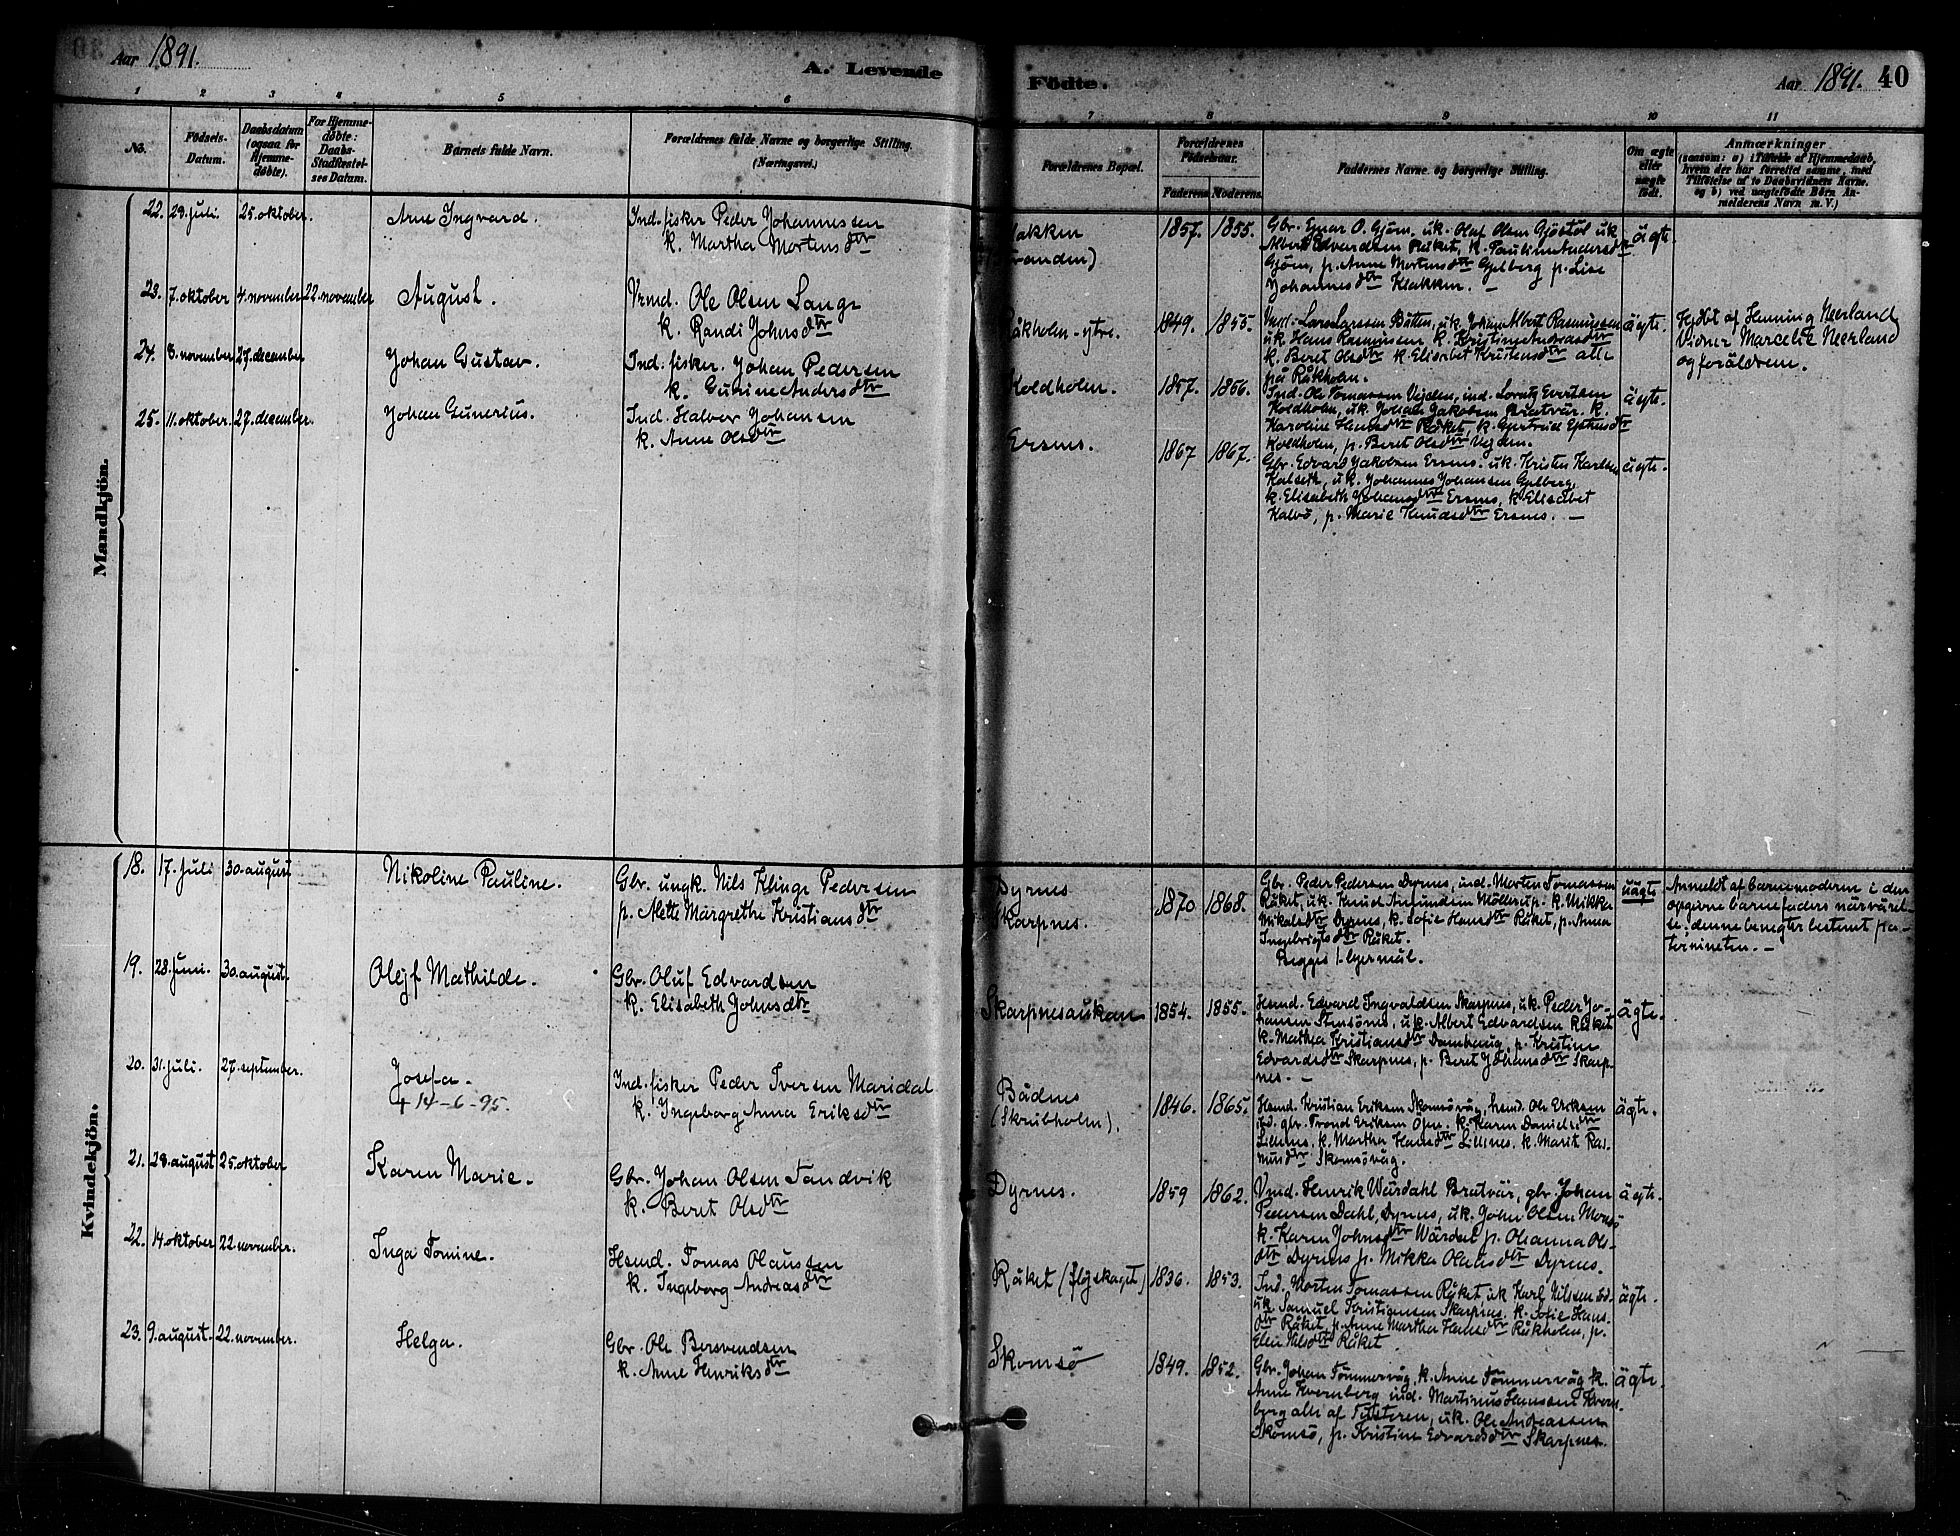 Aar 1891.
A. Levende
Födte.
Aar 1891. 40
1 2 3 4 5 6 7 8 9 10 11
No.
Födsels-
Datum.
Daabsdatum
(ogsaa for
Hjemme-
døbte).
For Hjemme-
døbte:
Daabs-
Stadfæstel-
ses Datum.
Barnets fulde Navn.
Forældrenes fulde Navne og borgerlige Stilling.
(Næringsvei.)
Forældrenes Bopæl.
Forældrenes
Födselsaar.
Faderens. Moderens.
Faddernes Navne og borgerlige Stilling.
Om ægte
eller
uægte
født.
Anmærkninger
(saasom: a) i Tilfælde af Hjemmedaab,
hvem der har forrettet samme, med
Tilføielse af to Daabsvidners Navne,
og b) ved uægtefødte Börn An-
melderens Navn m. V.)
Mandkjön.
22. 29. juli. 25. oktober. Arne Ingvard. Ind. fisker Peder Johannessen
k. Martha Mortensdtr
1857. 1855. Gbr. Ejnar O. Gjörn, uk. Oluf Olsen Gjöstöl uk
Albert Edvardsen Råket, k. Pauline Andersdtr
Gjörn, p. Anne Mortensdtr Gjelberg p. Lise
Johannesdtr Klakken. –
ägte.
23. 7. oktober 4. november 22. november August. Vrmd. Ole Olsen Lange
k. Randi Johnsdtr
Råkholm-ytre. 1849. 1855. Lars Larssen Båtten, uk. Johan Albert Rasmussen
uk. Hans Rasmussen k. Kristine Andreasdtr
k. Beret Olsdtr k. Elisabet Kristensdtr alle
på Råkholm.
ägte. Hjdbt af Henning Neerland
Vidner Marcelie Neerland
og foräldrene.
24. 8. november 27. december Johan Gustav. Ind. fisker. Johan Pedersen
k. Gurine Andersdtr
Koldholm. 1857. 1856. Ind. Ole Tomassen Vejden, ind. Lorntz Evertsen
Koldholm, uk. Johan Jakobsen Bratvär. k.
Karoline Hansdtr Råket, k. Gjertrud
Koldholm, p. Beret Olsdtr Vejden.
ägte.
25. 11. oktober. 27. december. Johan Gunerius. Ind. Halvor Johansen
k. Anne Olsdtr
Ersnes. 1867 1867. Gbr. Edvard Jakobsen Ersnes. uk. Kristen Karlsen
Kalseth, uk. Johannes Johansen Gjelberg,
k. Elisabeth Johansdtr Ersnes, k. Elisabet
Kalvö, p. Marie Knudsdtr Ersnes. –
ägte.
Kvindekjön.
18. 17. juli 30. august Nikoline Pauline. Gbr. ungk. Nils Klinge Pedersen
p. Mette Margrethe Kristiansdtr
Dyrnes
Skarpnes. 1870 1868. Gbr. Peder Pedersen Dyrnes, ind. Morten Tomassen
Råket, uk. Knud Amundsen Möllerup. k. Mikka
Mikalsdtr Dyrnes, k. Sofie Hansdtr Råket, p. Anna
Ingebrigtsdtr Råket.
Begges 1. lejermål.
uägte Anmeldt af barnemoderen i den
opgivne barnefaders närvärel-
se; denne benegter bestemt pa-
terniteten. –
19. 28. juni. 30. august. Olejf Mathilde. Gbr. Oluf Edvardsen
k. Elisabeth Johnsdtr
Skarpnesaukan 1854. 1855. Hsmd. Edvard Ingvaldsen Skarpnes, uk. Peder Jo-
hansen Stensönes, uk. Albert Edvardsen Råket
k. Mathea Kristiansdtr p. Kristine
Edvardsdtr Skarpnes, p. Beret Johansdtr Skarp-
nes. –
ägte.
20. 31. juli. 27. september. Josefa.
+ 14-6-95.
Ind. fisker Peder Iversen Maridal
k. Ingeborg Anna Eriksdtr
Bådnes
(Skrubholm). 1846. 1865. Hsmd. Kristian Eriksen Skomsövåg, hsmd. Ole Eriksen
ibd. gbr. Trond Eriksen k. Karen Danielsdtr
Lillenes, k. Martha Hansdtr Lillenes, k. Marit Ras-
musdtr Skomsövåg.
ägte.
21. 28. august 25. oktober Karen Marie. Gbr. Johan Olsen Sandvik
k. Beret Olsdtr
Dyrnes. 1859 1862. Vmd. Henrik Wärdahl Bratvär, gbr. Johan
Pedersen Dahl, Dyrnes, uk. John Olsen Monsö
k. Karen Johnsdtr Wärdal p. Olianna Ols-
dtr Dyrnes p. Mikka Olausdtr Dyrnes.
ägte.
22. 14. oktober 22. november. Inga Tomine. Hsmd. Tomas Olaussen
k. Ingeborg Andreasdtr
Råket (Fløjskaget) 1836. 1853. Ind. Morten Tomassen Råket uk Karl Nilssen ibd.
uk. Samuel Kristiansen Skarpnes. k. Sofie Hans-
dtr Råket, p. Anne Martha Hansdtr Råkholm, p.
Elen Nilsdtr Råket.
ägte.
23. 9. august. 22. november. Helga. Gbr. Ole Bersvendsen
k. Anne Henriksdtr
Skomsö 1849. 1852. Gbr. Johan Tömmervåg, k. Anne Tömmervåg k.
Anne Kvernberg ind. Martinus Hanssen Kvern-
berg alle af Tusteren, uk. Ole Andreassen
Skomsö, p. Kristine Edvardsdtr Skarpnes.
ägte.